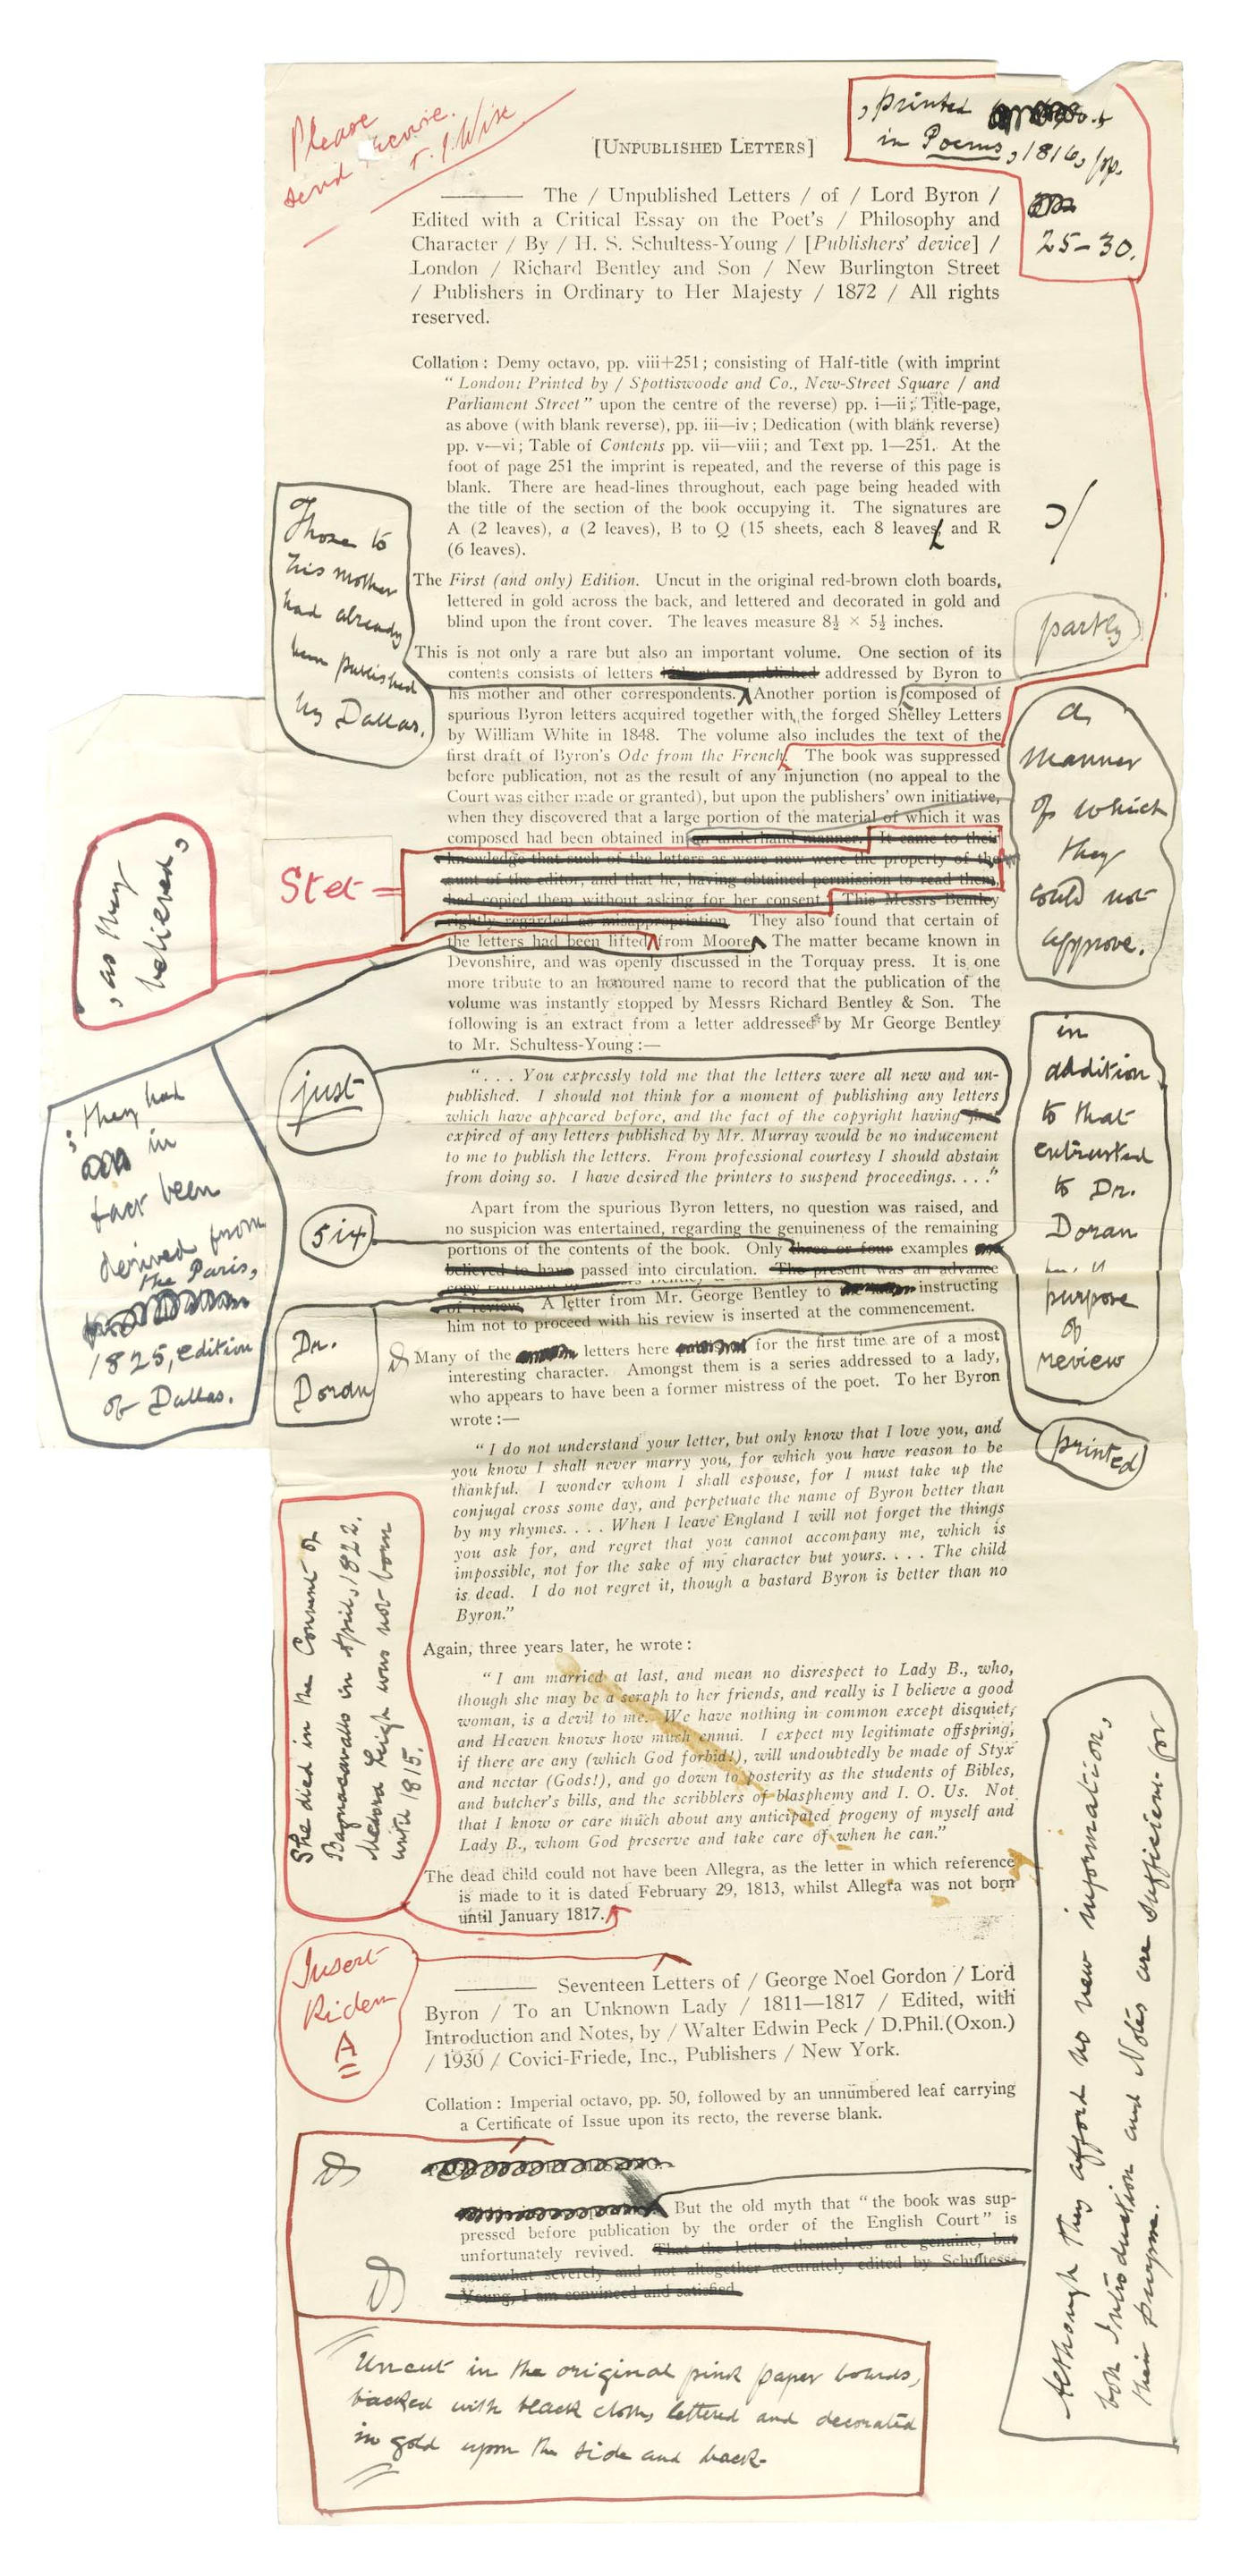 Please
send revise.
T. J. Wise
[UNPUBLISHED LETTERS]
, printed
in Poems, 1816, pp.
25-30.
——— The / Unpublished Letters / of / Lord Byron /
Edited with a Critical Essay on the Poet's / Philosophy and
Character / By / H. S. Schultess-Young / [Publishers' device] /
London / Richard Bentley and Son / New Burlington Street
/ Publishers in Ordinary to Her Majesty / 1872 / All rights
reserved.
Collation: Demy octavo, pp. viii+251; consisting of Half-title (with imprint
"London: Printed by / Spottiswoode and Co., New-Street Square / and
Parliament Street" upon the centre of the reverse) pp. i—ii; Title-page,
as above (with blank reverse), pp. iii—iv; Dedication (with blank reverse)
pp. v—vi; Table of Contents pp. vii—viii; and Text pp. 1—251. At the
foot of page 251 the imprint is repeated, and the reverse of this page is
blank. There are head-lines throughout, each page being headed with
the title of the section of the book occupying it. The signatures are
A (2 leaves), a (2 leaves), B to Q (15 sheets, each 8 leaves, and R
(6 leaves).
)/
Those to
his mother
had already
been published
by Dallas.
The First (and only) Edition. Uncut in the original red-brown cloth boards,
lettered in gold across the back, and lettered and decorated in gold and
blind upon the front cover. The leaves measure 8½ × 5½ inches.
partly
This is not only a rare but also an important volume. One section of its
contents consists of letters hitherto unpublished addressed by Byron to
his mother and other correspondents. Another portion is composed of
spurious Byron letters acquired together with the forged Shelley Letters
by William White in 1848. The volume also includes the text of the
first draft of Byron's Ode from the French. The book was suppressed
before publication, not as the result of any injunction (no appeal to the
Court was either made or granted), but upon the publishers' own initiative,
when they discovered that a large portion of the material of which it was
composed had been obtained in an underhand manner. It came to their
knowledge that such of the letters as were new were the property of the
aunt of the editor, and that he, having obtained permission to read them,
had copied them without asking for her consent. This Messrs Bentley
rightly regarded as misappropriation. They also found that certain of
the letters had been lifted from Moore. The matter became known in
Devonshire, and was openly discussed in the Torquay press. It is one
more tribute to an honoured name to record that the publication of the
volume was instantly stopped by Messrs Richard Bentley & Son. The
following is an extract from a letter addressed by Mr George Bentley
to Mr. Schultess-Young:—
a
manner
of which
they
could not
approve.
Stet =
, as they
believed,
; they had
in
fact been
derived from
the Paris,
1825, edition
of Dallas.
just
". . . You expressly told me that the letters were all new and un-
published. I should not think for a moment of publishing any letters
which have appeared before, and the fact of the copyright having first
expired of any letters published by Mr. Murray would be no inducement
to me to publish the letters. From professional courtesy I should abstain
from doing so. I have desired the printers to suspend proceedings. . . ."
in
addition
to that
entrusted
to Dr.
Doran
purpose
of
review
six
Apart from the spurious Byron letters, no question was raised, and
no suspicion was entertained, regarding the genuineness of the remaining
portions of the contents of the book. Only three or four examples are
believed to have passed into circulation. The present was an advance
of review. A letter from Mr. George Bentley to instructing
him not to proceed with his review is inserted at the commencement.
Dr.
Doran
Many of the letters here for the first time are of a most
interesting character. Amongst them is a series addressed to a lady,
who appears to have been a former mistress of the poet. To her Byron
wrote:—
printed
"I do not understand your letter, but only know that I love you, and
you know I shall never marry you, for which you have reason to be
thankful. I wonder whom I shall espouse, for I must take up the
conjugal cross some day, and perpetuate the name of Byron better than
by my rhymes. . . . When I leave England I will not forget the things
you ask for, and regret that you cannot accompany me, which is
impossible, not for the sake of my character but yours. . . . The child
is dead. I do not regret it, though a bastard Byron is better than no
Byron."
Again, three years later, he wrote:
"I am married at last, and mean no disrespect to Lady B., who,
though she may be a seraph to her friends, and really is I believe a good
woman, is a devil to me. We have nothing in common except disquiet,
and Heaven knows how much ennui. I expect my legitimate offspring,
if there are any (which God forbid!), will undoubtedly be made of Styx
and nectar (Gods!), and go down to posterity as the students of Bibles,
and butcher's bills, and the scribblers of blasphemy and I. O. Us. Not
that I know or care much about any anticipated progeny of myself and
Lady B., whom God preserve and take care of when he can."
The dead child could not have been Allegra, as the letter in which reference
is made to it is dated February 29, 1813, whilst Allegra was not born
until January 1817.
She died in the Convent of
Bagnacavallo in April, 1822.
Medora Leigh was not born
until 1815.
Insert
Rider
A
——— Seventeen Letters of / George Noel Gordon / Lord
Byron / To an Unknown Lady / 1811—1817 / Edited, with
Introduction and Notes, by / Walter Edwin Peck / D.Phil.(Oxon.)
/ 1930 / Covici-Friede, Inc., Publishers / New York.
Collation: Imperial octavo, pp. 50, followed by an unnumbered leaf carrying
a Certificate of Issue upon its recto, the reverse blank.
But the old myth that "the book was sup-
pressed before publication by the order of the English Court" is
unfortunately revived. That the letters themselves are genuine, but
somewhat severely and not altogether accurately edited by Schultess-
Young, I am convinced and satisfied.
Although they afford no new information,
both Introduction and Notes are sufficient for
their purpose.
Uncut in the original pink paper boards,
backed with black cloth, lettered and decorated
in gold upon the side and back.